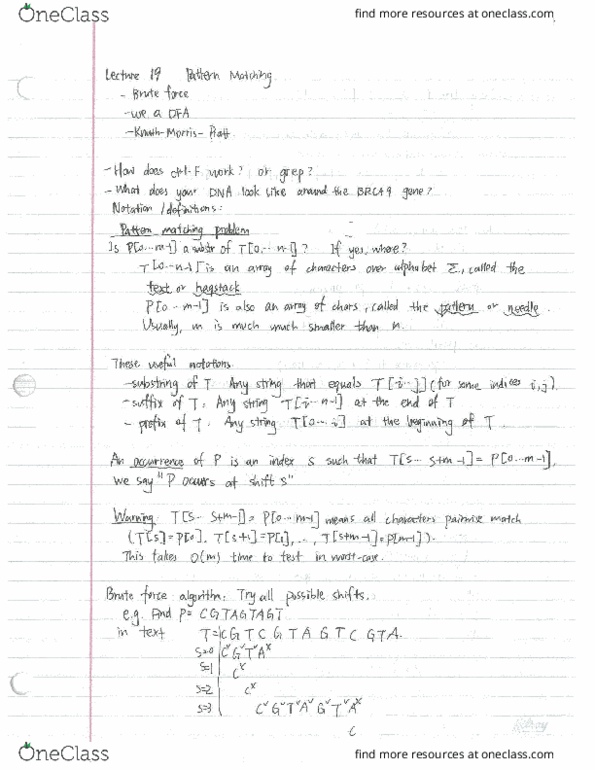 OneClass
find more resources at oneclass.com
Lecture 19 Pattern Matching
- Brute force
- use a DFA
- Knuth-Morris-Pratt
- How does ctrl-F work? or grep?
- What does your DNA look like around the BRCA9 gene?
Notation / definitions:
Pattern matching problem
Is P[0...m-1] a substr of T[0...n-1]? If yes, where?
T[0...n-1] is an array of characters over alphabet Σ, called the
text or haystack
P[0...m-1] is also an array of chars, called the pattern or needle.
Usually, m is much much smaller than n.
These useful notations.
- substring of T. Any string that equals T[i...j] (for some indices i,j).
- suffix of T. Any string T[i...n-1] at the end of T
- prefix of T. Any string T[0...i] at the beginning of T.
An occurrence of P is an index s such that T[s...s+m-1] = P[0...m-1],
we say "P occurs at shift s"
Warning: T[s...s+m-1] = P[0...m-1] means all characters pairwise match
(T[s]=P[0], T[s+1]=P[1], ..., T[s+m-1]=P[m-1]).
This takes O(m) time to test in worst-case.
Brute force algorithm. Try all possible shifts.
e.g. Find P= CGTAGTAGT
in text T=CGTCGTAGTCGTA.
s=0 C✓G✓T✓A×
s=1 C×
s=2 C×
s=3 C✓G✓T✓A✓G✓T✓A×
C
OneClass
find more resources at oneclass.com